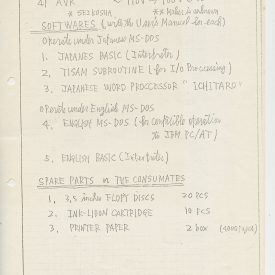 4) AVR ~ 110V → 100V
* SEIKOSHA ** Maker is unknown
SOFTWARES (with the Users Manual for each)
Operate under Japanese MS-DOS
1. JAPANES BASIC (Interpreter)
2. TISAM SUBROUTINE (for I/O Processing)
3. JAPANESE WORD PROCCESSOR "ICHITARO"
Operate under English MS-DOS
4. ENGLISH MS-DOS (for compatible operation
to IBM PC/AT)
5. ENGLISH BASIC (Interpreter)
SPARE PARTS or THE CONSUMATES
1. 3,5 inches FLOPY DISCS 20 PCS
2. INK-LIBON CARTRIDGE 10 PCS
3. PRINTER PAPER 2 box